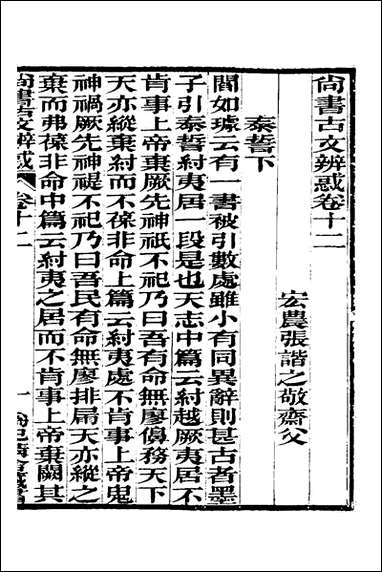 尙書古文辨惑卷十二
宏農張諧之敬齋父
泰誓下
閻如璩云有一書被引數處雖小有同異辭則甚古者墨
子引泰誓紂夷居一段是也天志中篇云紂越厥夷居不
肯事上帝棄厥先神祇不祀乃曰吾有命無廖𠋫務天下
天亦縱棄紂而不葆非命上篇云紂夷處不肯事上帝鬼
神禍厥先神禔不祀乃曰吾民有命無廖排扇天亦縱之
棄而弗葆非命中篇云紂夷之居而不肯事上帝棄闕其
尙書古文辨惑 卷十二 一